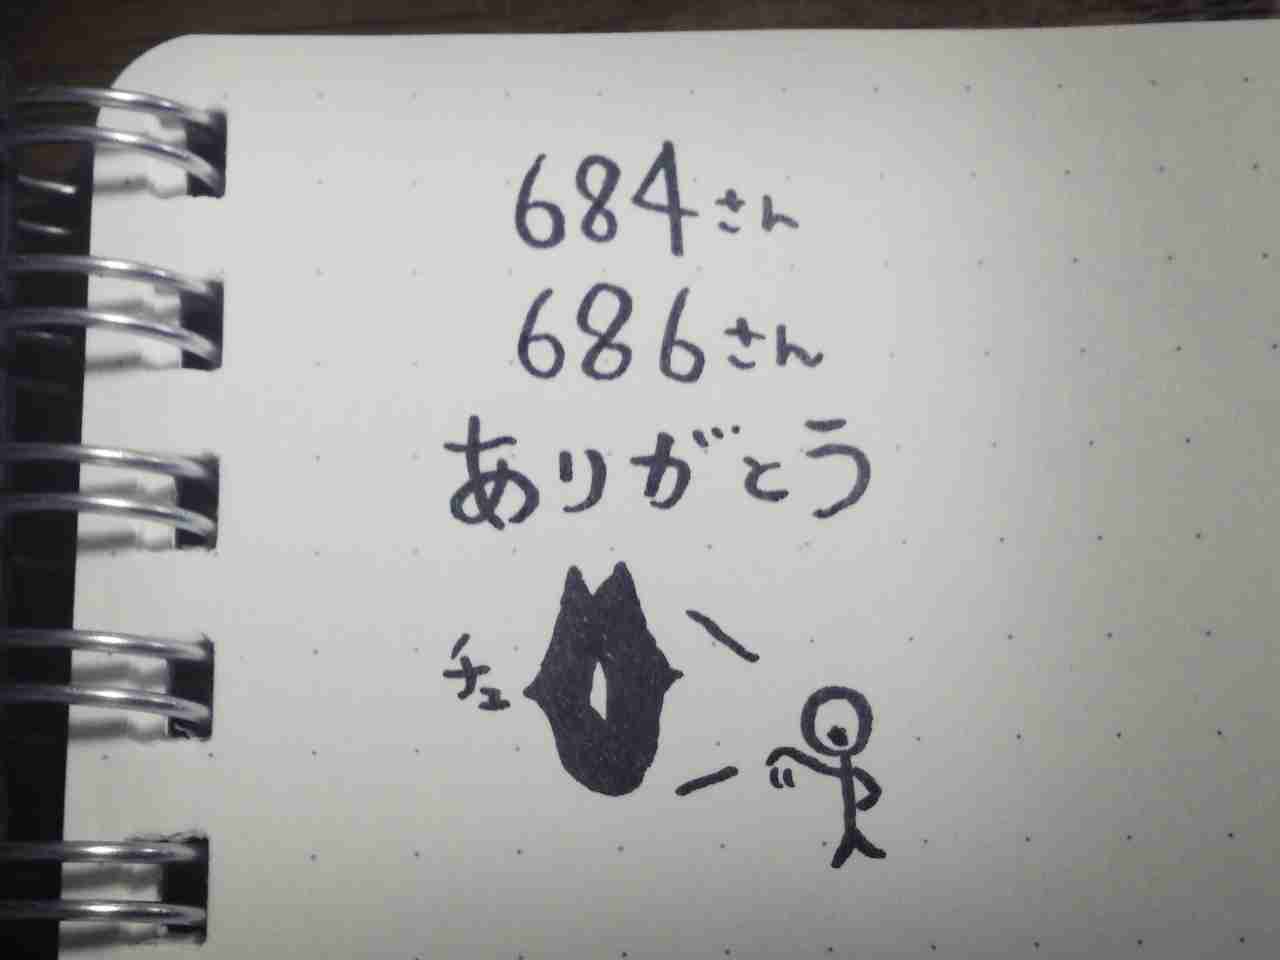 684さん
686さん
ありがとう
チュ